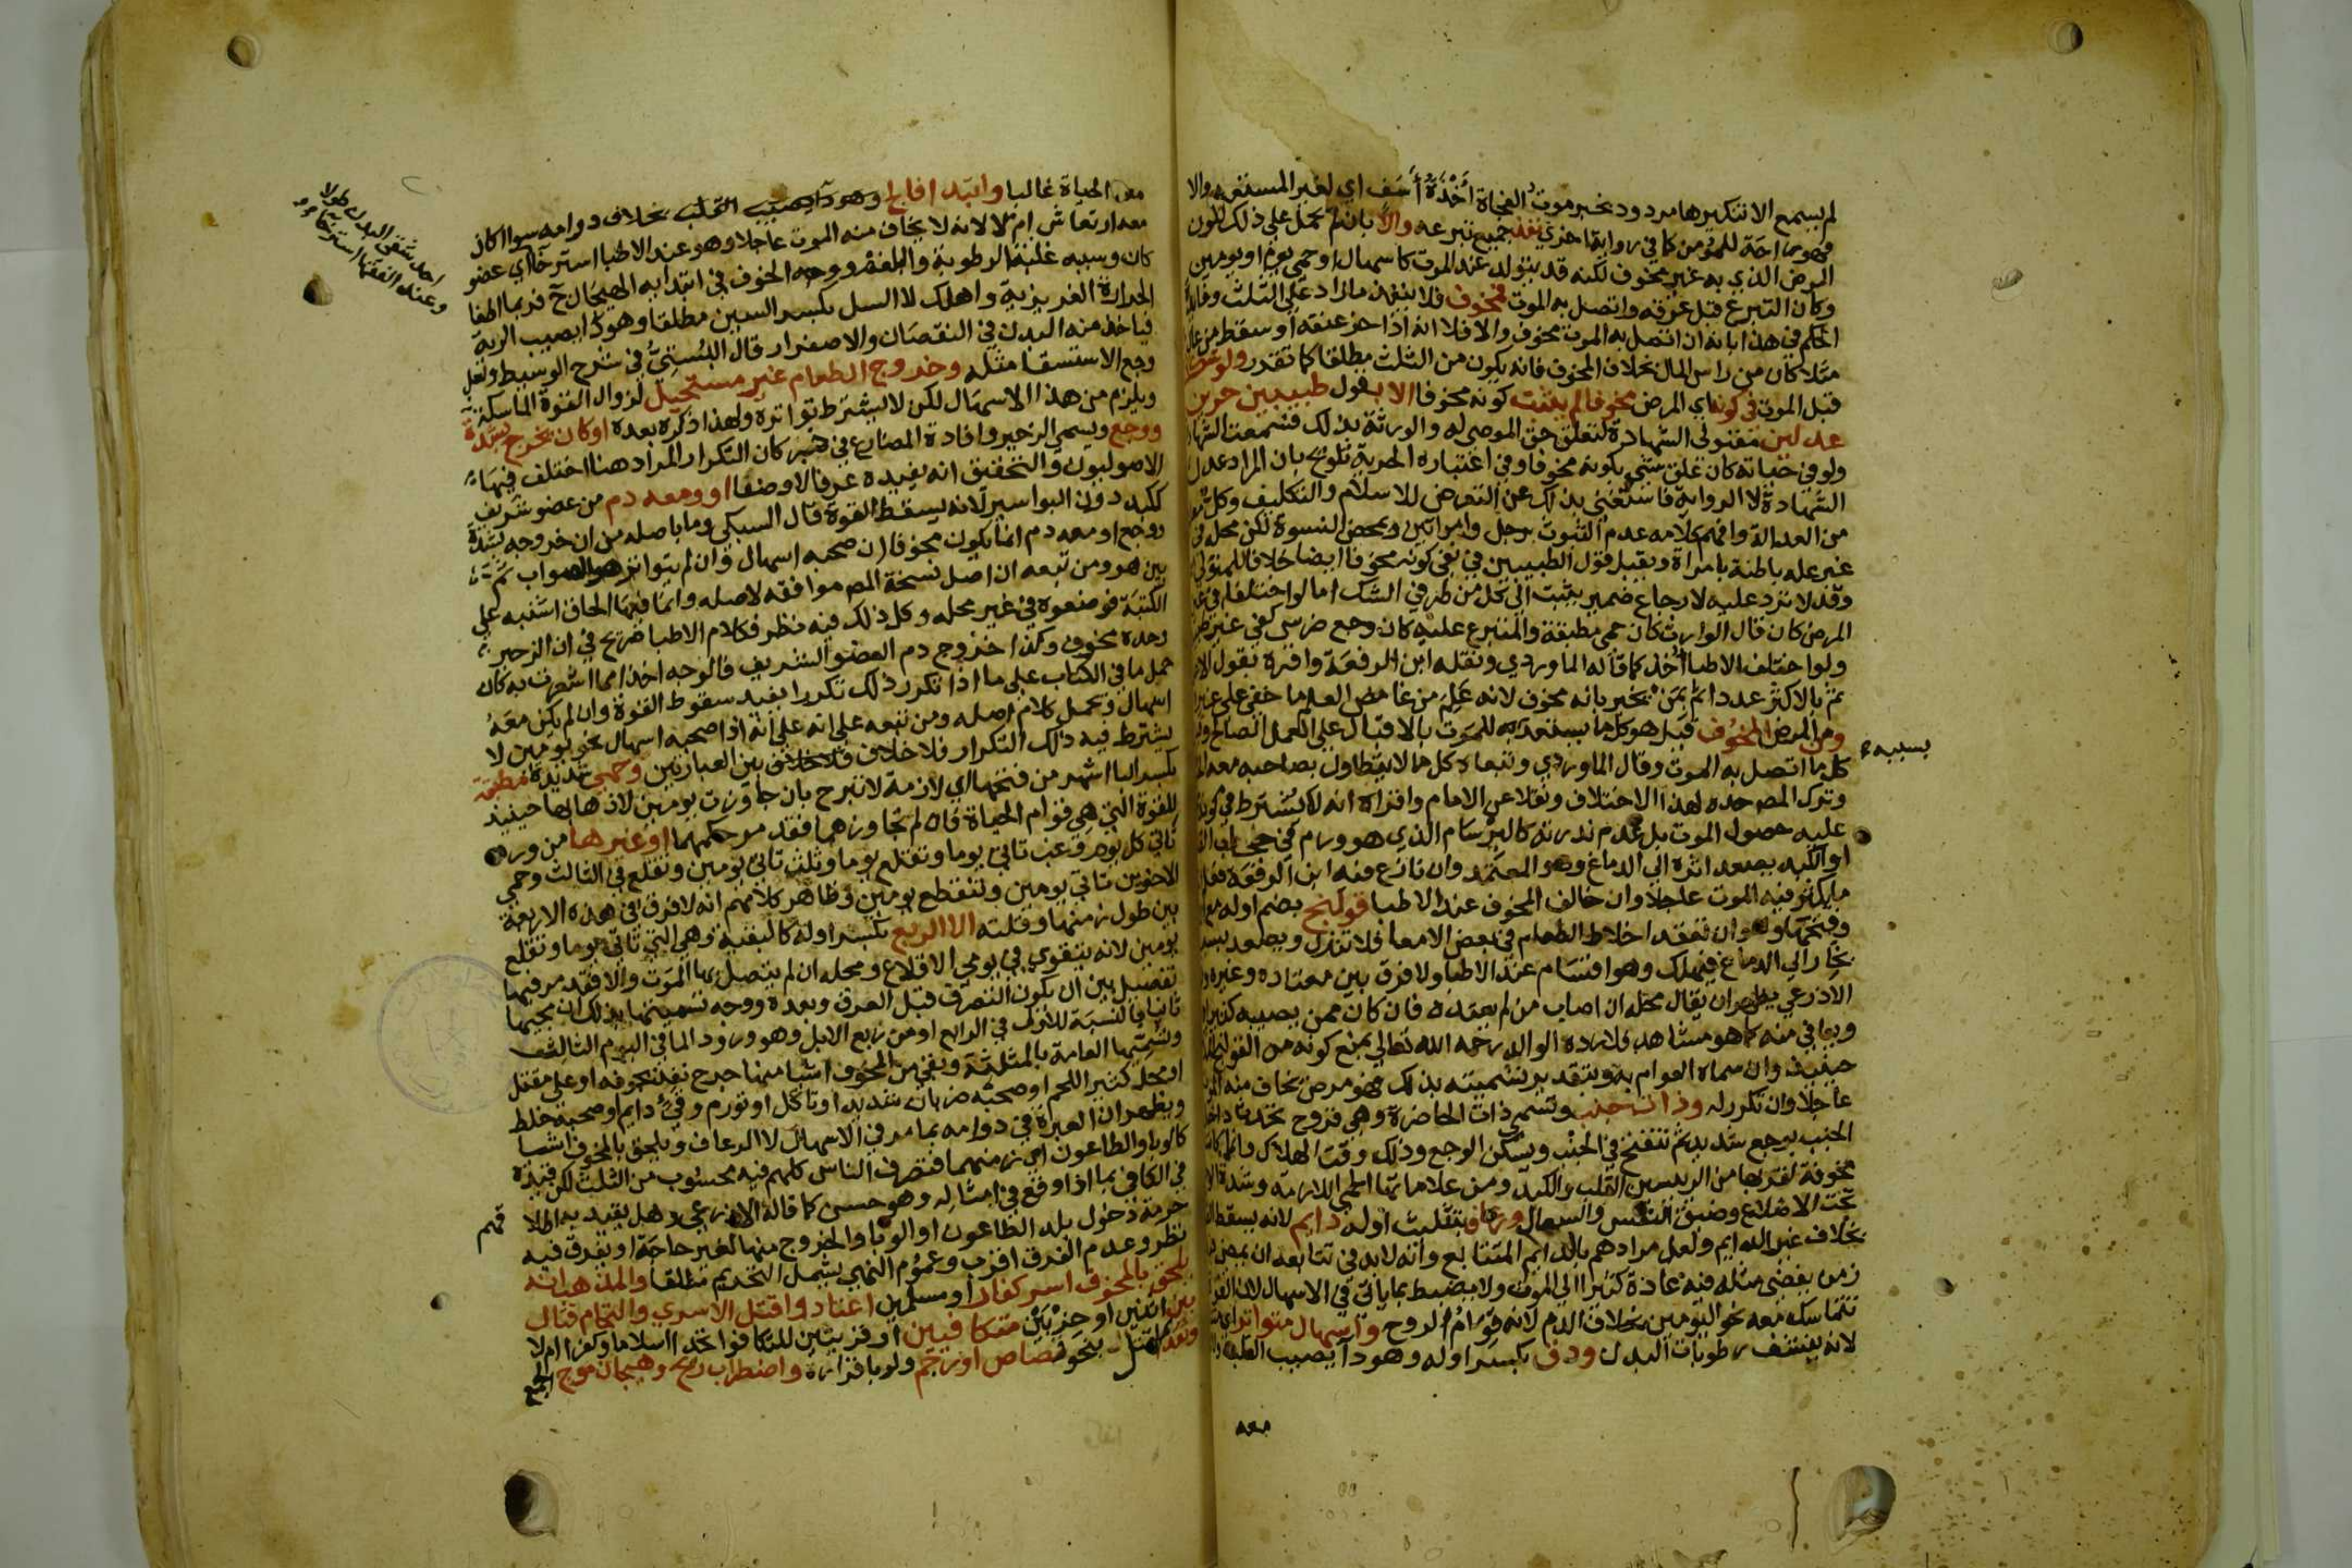 لم يسمع الا تنكيرها مردود بخبر موت الفجاة أخذة أسف اي لغير المستعد والا
فهو راحة للمؤمن كما في رواية اخرى نفذ جميع تبرعه والا بان لم يحمل على ذلك لكون
المرض الذي به غير مخوف لكنه قد يتولد عند الموت كاسهال او حمى يوم او يومين
وكان التبرع قبل عرقه واتصل به الموت فمخوف فلا ينفذ ما زاد على الثلث
الحكم في هذا بانه ان اتصل به الموت مخوف والا فلا انه اذا حز عنقه او سقط من عال
مثلا كان من راس المال بخلاف المخوف فانه يكون من الثلث مطلقا كما تقدر ولو شك
قبل الموت في كونه اي المرض مخوفا لم يثبت كونه مخوفا الا بقول طبيبين حرين
عدلين مقبولي الشهادة لتعلق حق الموصى له والورثة بذلك فتسمع الشهادة
ولو في حياته كان علق شيء بكونه مخوفا وفي اعتباره الحرية تلويح بان المراد عدل
الشهادة لا الرواية فاستغنى بذلك عن التعرض للاسلام والتكليف وكل
من العدالة وافهم كلامه عدم الثبوت برجل وامراتين وبمحض النسوة لكن محله في
غير علة باطنة بامراة ويقبل قول الطبيبين في نفي كونه مخوفا ايضا خلافا للمتولي
وقد لا ترد عليه لارجاع ضمير يثبت الى كل من طرفي الشك اما لو اختلفا في
المرض كان قال الوارث كان حمى مطبقة والمتبرع عليه كان وجع ضرس كفى غير
ولو اختلف الاطبا أخذ كما قاله الماوردي ونقله ابن الرفعة واقره بقول الا
ثم بالاكثر عددا ثم بمن يخبر بانه مخوف لانه علم من غامض العلم ما خفي على غيره
ومن المرض المخوف قيل هو كل ما يستعد بسببه للموت بالاقبال على العمل الصالح
كل ما اتصل به الموت وقال الماوردي وتبعاه كل ما لا يتطاول بصاحبه معه
وترك المص حده لهذا الاختلاف ونقلا عن الامام واقراه انه لا يشترط في كونه
عليه حصول الموت بل عدم ندرته كالبرسام الذي هو ورم في حجاب القلب
او الكبد يصعد اثره الى الدماغ وهو المعتمد وان نازع فيه ابن الرفعة
ما يكثر فيه الموت عاجلا وان خالف المخوف عند الاطبا قولنج بضم اوله مع
وفتحها وهو ان تنعقد اخلاط الطعام في بعض الامعا فلا تنزل ويصعد بسببه
بخار الى الدماغ فيهلك وهو اقسام عند الاطبا ولا فرق بين معتاده وغيره
الاذرعي يظهر ان يقال محله ان اصاب من لم يعتده فان كان ممن يصيبه كثيرا
ويعافي منه كما هو مشاهد فلا رده الوالد رحمه الله تعالى بمنع كونه من القولنج
حينئذ وان سماه العوام به وبتقدير تسميته بذلك فهو مرض يخاف منه الموت
عاجلا وان تكرر له وذات جنب وتسمى ذات الخاصرة وهي قروح تحدث داخل
الجنب بوجع شديد ثم تنفتح في الجنب ويسكن الوجع وذلك وقت الهلاك وانما كانت
مخوفة لقربها من الرئيسين القلب والكبد ومن علاماتها الحمى اللازمة وشدة
تحت الاضلاع وضيق النفس والسعال ورعاف بتثليث اوله دايم لانه يسقط
بخلاف غير الدايم ولعل مرادهم بالدايم المتتابع وانه لا بد في تتابعه ان يمضي
زمن يفضي مثله فيه عادة كثيرا الى الموت ولا يضبط بما ياتي في الاسهال لان القوى
تتماسك معه نحو اليومين بخلاف الدم لانه قوام الروح واسهال متواتر اي
لانه ينشف رطوبات البدن ودق بكسر اوله وهو دآ يصيب القلب
معه
بسببه
معه الحياة غالبا وابتدا فالج وهو دآ يصيب القلب بخلاف دوامه سوا اكان
معه ارتعاش ام لا لانه لا يخاف منه الموت عاجلا وهو عند الاطبا استرخا اي عضو
كان وسببه غلبة الرطوبة والبلغم ووجه الخوف في ابتدايه الهيجان ح فربما اطفا
الحرارة الغريزية واهلك لا السل بكسر السين مطلقا وهو دآ يصيب الرية
فياخذ منه البدن في النقصان والاصفرار قال البستي في شرح الوسيط ولعل
وجع الاستسقا مثله وخروج الطعام غير مستحيل لزوال القوة الماسكة
ويلزم من هذا الاسهال لكن لا يشترط تواتره ولهذا ذكره بعده او كان يخرج بشدة
ووجع ويسمى الزحير وافادة المضارع في خبر كان التكرار المراد هنا اختلف فيها
الاصوليون والتحقيق انه يفيده عرفا لا وضعا او ومعه دم من عضو شريف
ككبد دون البواسير لانه يسقط القوة قال السبكي وما باصله من ان خروجه بشدة
ووجع او معه دم انما يكون مخوفا ان صحبه اسهال وان لم يتواتر هو الصواب ثم
بين هو ومن تبعه ان اصل نسخة المص موافقه لاصله وانما فيها الحاق اشتبه على
الكتبة فوضعوه في غير محله وكل ذلك فيه نظر فكلام الاطبا صريح في ان الزحير
وحده مخوف وكذا خروج دم العضو الشريف فالوجه اخذا مما اشعرت به كان
حمل ما في الكتاب على ما اذا تكرر ذلك تكررا يفيد سقوط القوة وان لم يكن معه
اسهال ويحمل كلام اصله ومن تبعه على انه على انه اذا صحبه اسهال نحو يومين لا
يشترط فيه ذلك التكرار فلا خلاف بين العبارتين وحمى شديدة مطبقة
بكسر البا اشهر من فتحها اي لازمة لا تبرح بان جاوزت يومين لاذهابها حينئذ
للقوة التي هي قوام الحياة فان لم تجاوزهما فقد مر حكمهما او غيرها من ورد
تاتي كل يوم وغب تاتي يوما وتقلع يوما وثلث تاتي يومين وتقلع في الثالث وحمى
الاخوين تاتي يومين وتنقطع يومين وظاهر كلامهم انه لا فرق في هذه الاربعة
بين طول زمنها وقلته الا الربع بكسر اوله كالبقية وهي التي تاتي يوما وتقلع
يومين لانه يتقوى في يومي الاقلاع ومحله ان لم يتصل بها الموت والا فقد مر فيها
تفصيل بين ان يكون التصرف قبل العرق وبعده ووجه تسميتها بذلك ان مجيها
ثانيا بالنسبة للاول في الرابع او من ربع الابل وهو ورود الما في اليوم الثالث
وتسميها العامة بالمثلثة وبقي من المخوف اشيا منها جرح نفذ لجوفه او على مقتل
او محل كثير اللحم او صحبه ضربان شديد او تاكل او تورم وقئ دايم او صحبه خلط
ويظهر ان العبرة في دوامه بما مر في الاسهال لا الرعاف ويلحق بالمخوف اشيا
كالوبا والطاعون اي زمنهما فتصرف الناس كلهم فيه محسوب من الثلث لكن قيده
في الكافي بما اذا وقع في امثاله وهو حسن كما قاله الاذرعي وهل يقيد به اطلاقهم
حرمة دخول بلد الطاعون او الوبا والخروج منها لغير حاجة او يفرق فيه
نظر وعدم الفرق اقرب وعموم النهي يشمل التحريم مطلقا والمذهب انه
يلحق بالمخوف اسر كفار او مسلمين اعتادوا قتل الاسرى والتحام قتال
بين اثنين او حزبين متكافيين او قريبين للتكافؤ اتحدا اسلاما وكفرا ام لا
وتقديم لقتل بنحو قصاص او رجم ولو باقراره واضطراب ريح وهيجان موج الجمع
احد شقي البدن طولا
وعند الفقها استرخا